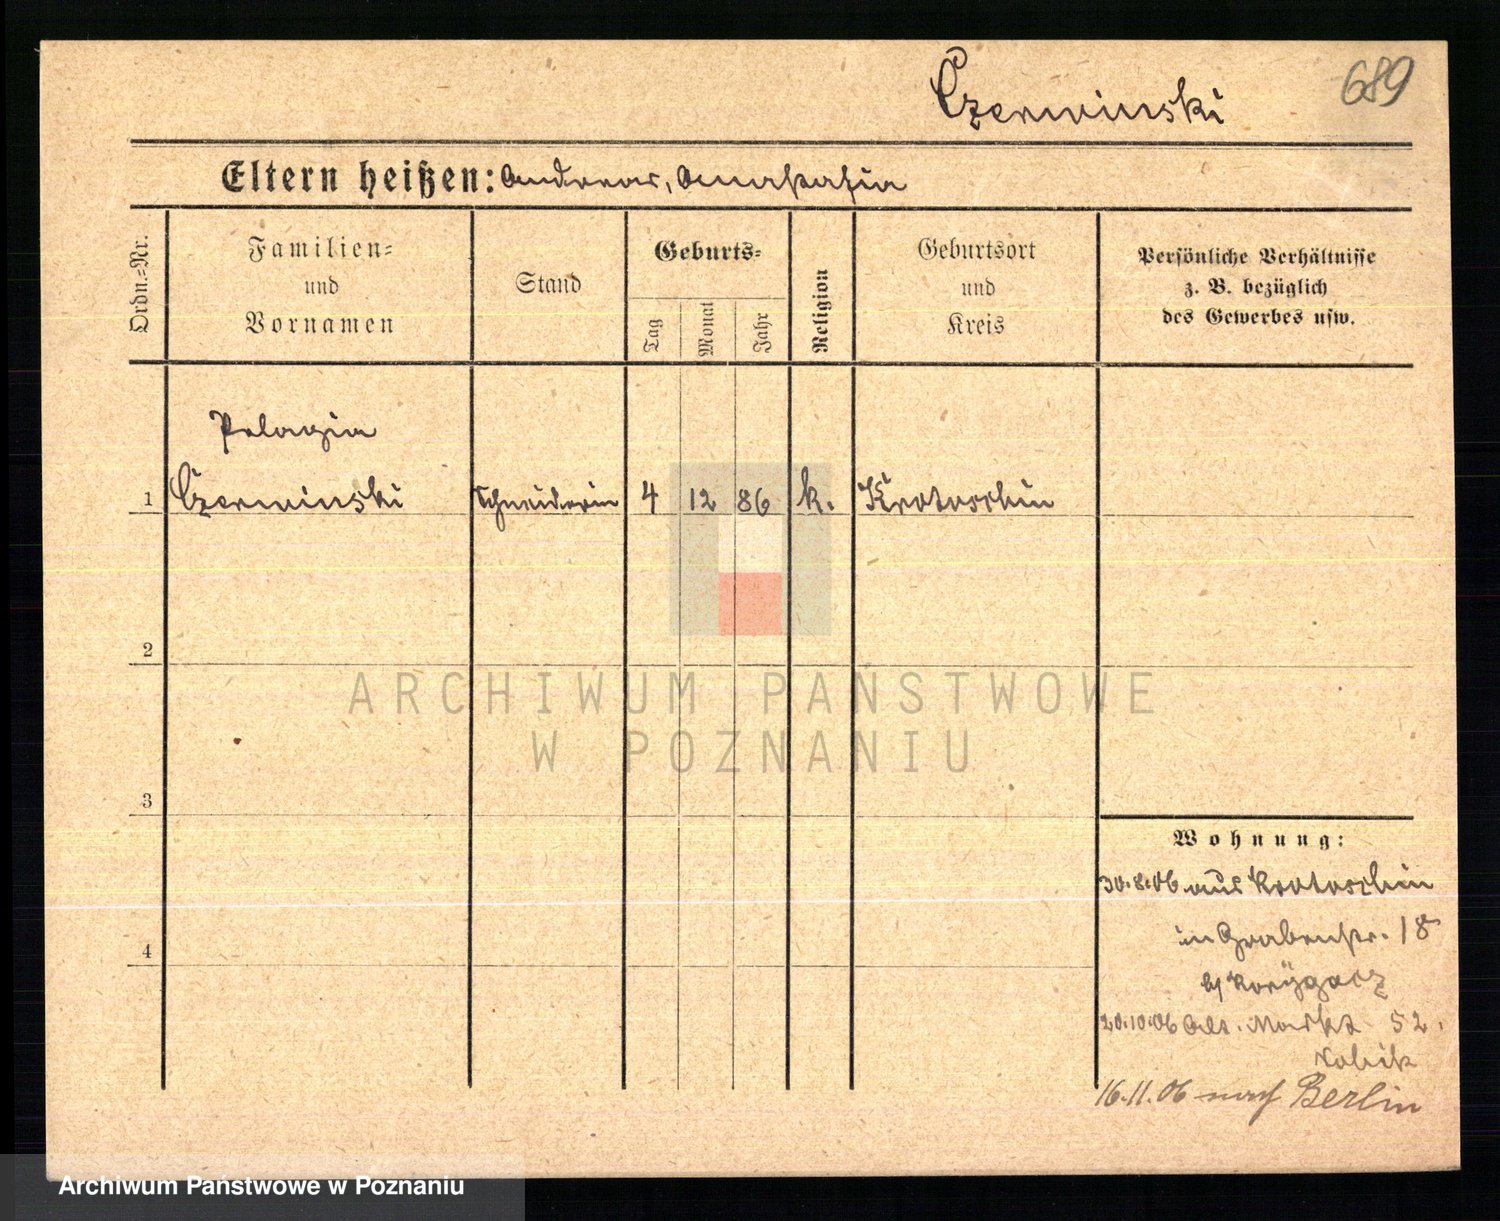 689
Czerwinski
Eltern heißen: Andreas, Anastasia
Ordn.=Nr.
Familien=
und
Vornamen
Stand
Geburts=
Tag
Monat
Jahr
Religion
Geburtsort
und
Kreis
Persönliche Verhältnisse
z. B. bezüglich
des Gewerbes usw.
Pelagia
1 Czerwinski Schneiderin 4 12 86 k. Krotoschin
2
3
4
Wohnung:
30.8.06 aus Krotoschin
in Grabenstr. 18
b/
20.10.06 Alt. Markt 52.
16.11.06 nach Berlin
ARCHIWUM PAŃSTWOWE
W POZNANIU
Archiwum Państwowe w Poznaniu